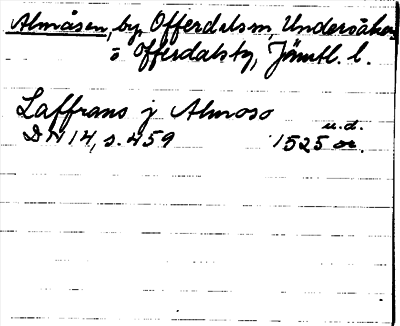 Almåsen, by, Offerdalsm, Undersåkers
o Offerdalstg, Jämtl. l.
Laffrans j Almoso
u. d.
DN 14, s. 459 1525 or.